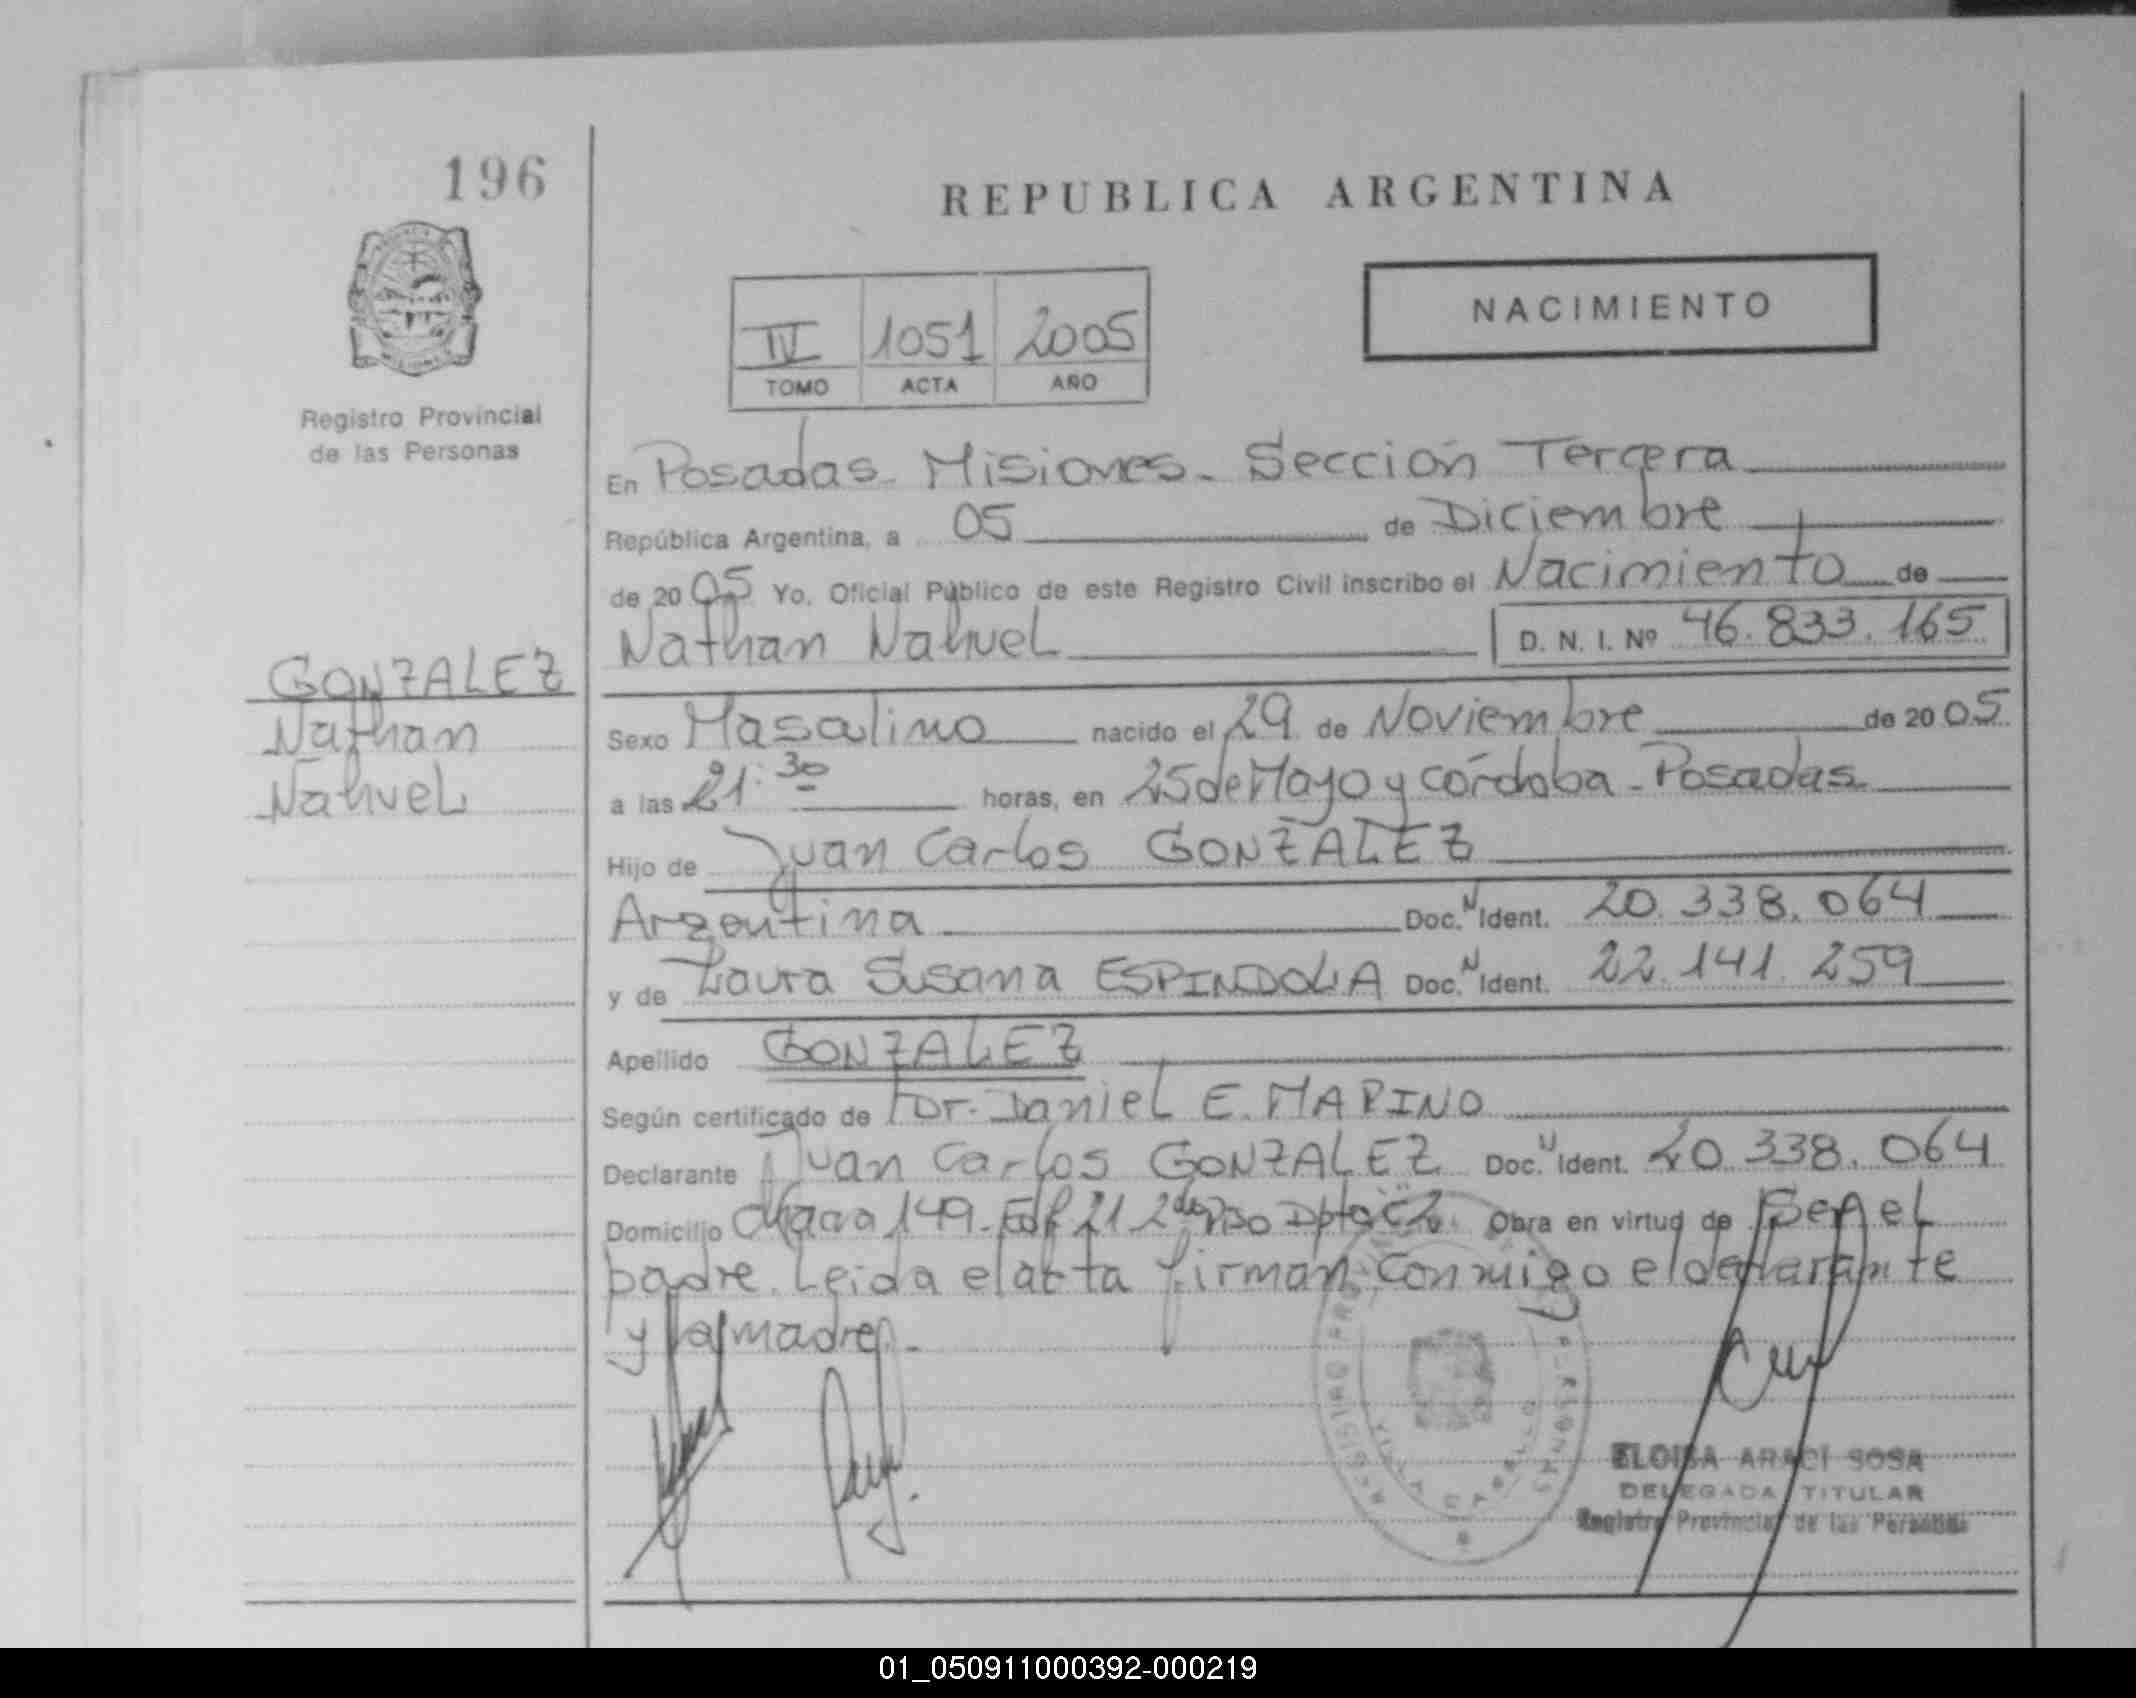 196
REPUBLICA ARGENTINA
NACIMIENTO
IV 1051 2005
TOMO ACTA AÑO
Registro Provincial
de las Personas
En Posadas - Misiones - Sección Tercera
República Argentina, a 05 de Diciembre
de 2005 Yo, Oficial Público de este Registro Civil inscribo el Nacimiento de
Nathan Nahuel D. N. I. Nº 46.833.165
GONZALEZ
Nathan
Nahuel
Sexo Masculino nacido el 29 de Noviembre de 2005
a las 21:30 horas, en 25 de Mayo y Córdoba - Posadas
Hijo de Juan Carlos GONZALEZ
Argentina Doc. N Ident. 20.338.064
y de Laura Susana ESPINDOLA Doc. N Ident. 22.141.259
Apellido GONZALEZ
Según certificado de Dr. Daniel E. MARINO
Declarante Juan Carlos GONZALEZ Doc. N Ident. 20.338.064
Domicilio Chacra 149 - Edf 21 2do Piso Dpto "C2" Obra en virtud de Ser el
padre. Leida el acta firman conmigo el declarante
y la madre.-
ELOISA ARACI SOSA
DELEGADA TITULAR
Registro Provincial de las Personas
01_050911000392-000219